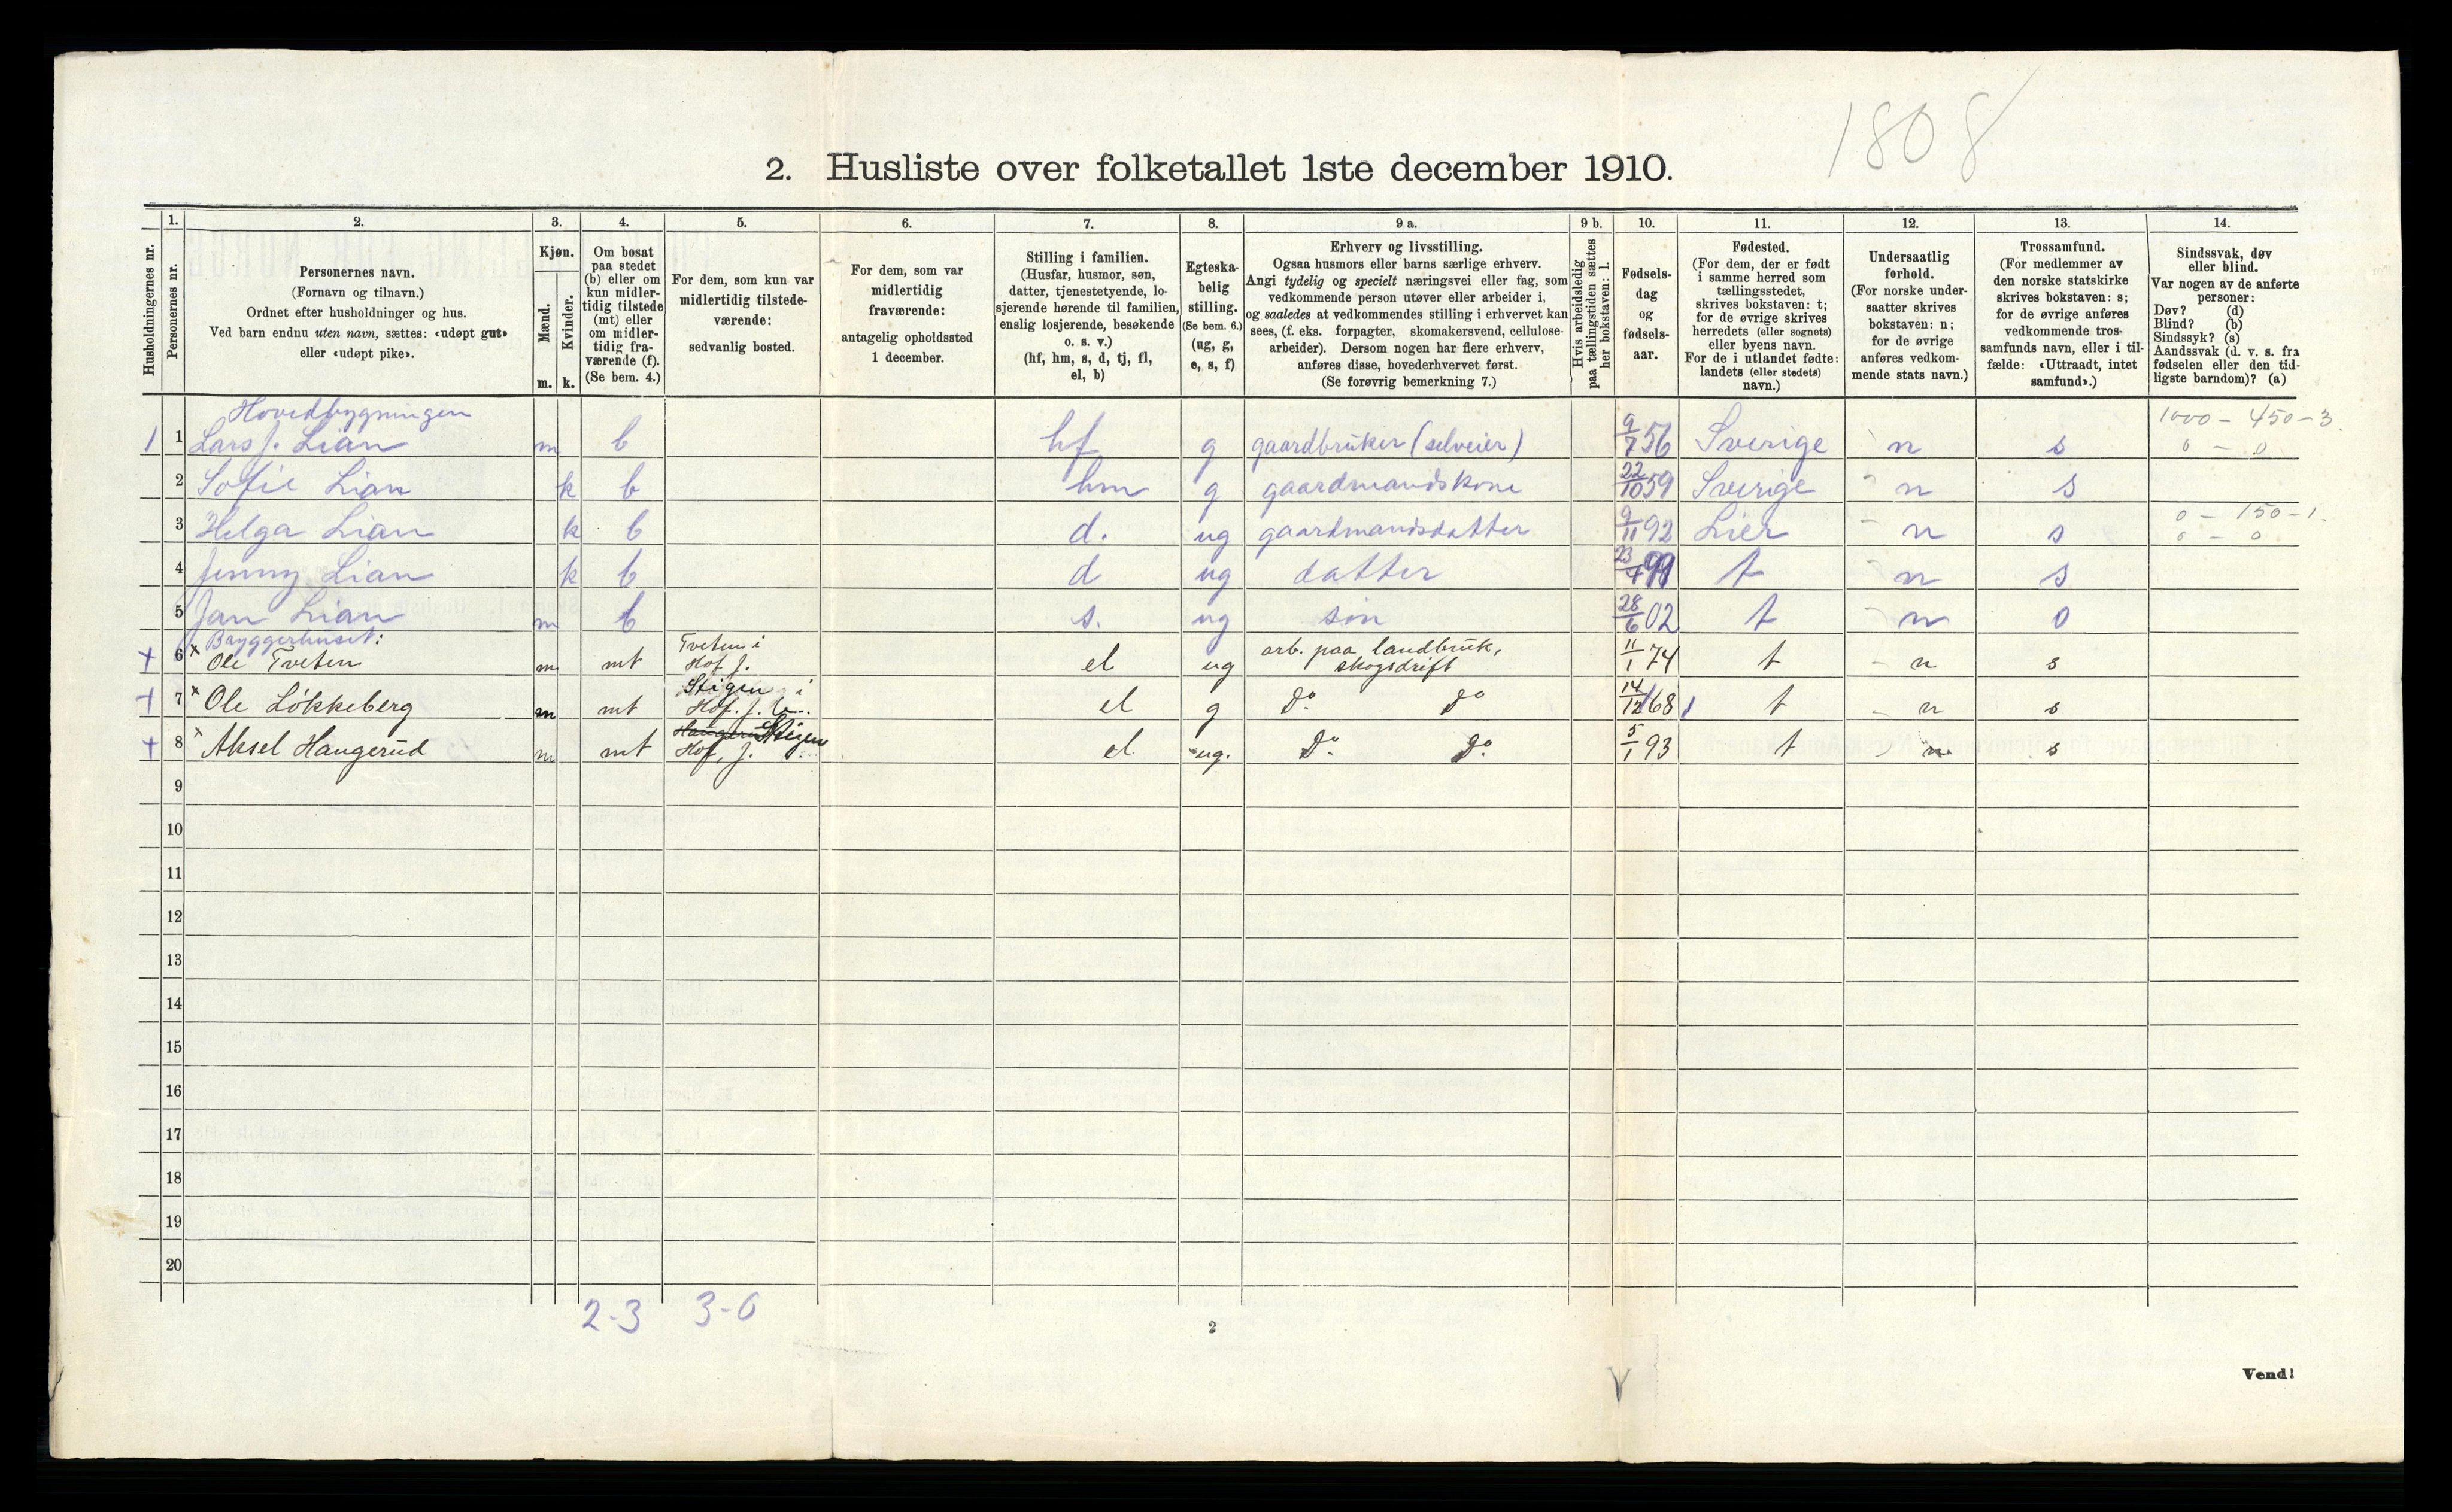 1808
2. Husliste over folketallet 1ste december 1910.
Husholdningernes nr.
1.
Personernes nr.
2.
Personernes navn.
(Fornavn og tilnavn.)
Ordnet efter husholdninger og hus.
Ved barn endnu uten navn, sættes: «udøpt gut»
eller «udøpt pike».
3.
Kjøn.
Mænd.
Kvinder.
m. k.
4.
Om bosat
paa stedet
(b) eller om
kun midler-
tidig tilstede
(mt) eller
om midler-
tidig fra-
værende (f).
(Se bem. 4.)
5.
For dem, som kun var
midlertidig tilstede-
værende:
sedvanlig bosted.
6.
For dem, som var
midlertidig
fraværende:
antagelig opholdssted
1 december.
7.
Stilling i familien.
(Husfar, husmor, søn,
datter, tjenestetyende, lo-
sjerende hørende til familien,
enslig losjerende, besøkende
o. s. v.)
(hf, hm, s, d, tj, fl,
el, b)
8.
Egteska-
belig
stilling.
(Se bem. 6.)
(ug, g,
e, s, f)
9 a.
Erhverv og livsstilling.
Ogsaa husmors eller barns særlige erhverv.
Angi tydelig og specielt næringsvei eller fag, som
vedkommende person utøver eller arbeider i,
og saaledes at vedkommendes stilling i erhvervet kan
sees, (f. eks. forpagter, skomakersvend, cellulose-
arbeider). Dersom nogen har flere erhverv,
anføres disse, hovederhvervet først.
(Se forøvrig bemerkning 7.)
9 b.
Hvis arbeidsledig
paa tællingstiden sættes
her bokstaven: l.
10.
Fødsels-
dag
og
fødsels-
aar.
11.
Fødested.
(For dem, der er født
i samme herred som
tællingsstedet,
skrives bokstaven: t;
for de øvrige skrives
herredets (eller sognets)
eller byens navn.
For de i utlandet fødte:
landets (eller stedets)
navn.)
12.
Undersaatlig
forhold.
(For norske under-
saatter skrives
bokstaven: n;
for de øvrige
anføres vedkom-
mende stats navn.)
13.
Trossamfund.
(For medlemmer av
den norske statskirke
skrives bokstaven: s;
for de øvrige anføres
vedkommende tros-
samfunds navn, eller i til-
fælde: «Uttraadt, intet
samfund».)
14.
Sindssvak, døv
eller blind.
Var nogen av de anførte
personer:
Døv? (d)
Blind? (b)
Sindssyk? (s)
Aandssvak (d. v. s. fra
fødselen eller den tid-
ligste barndom)? (a)
Hovedbygningen
1000 - 450 - 3.
1 1 Lars J. Lian m b hf g gaardbruker (selveier) 9/7 56 Sverige n s 0 - 0
2 Sofie Lian k b hm g gaardmandskone 22/10 59 Sverige - n s
0 - 150 - 1.
3 Helga Lian k b d. ug gaardmandsdatter 9/11 92 Lier - n s 0 - 0
4 Jenny Lian k b d ug datter 23/4 99 t - n s
5 Jan Lian m b s. ug søn 28/6 02 t - n s
Bryggerhuset: Tveten i arb. paa landbruk,
+ 6 x Ole Tveten m mt Hof J. el ug skogsdrift 11/1 74 t - n s
Stigen i
+ 7 x Ole Løkkeberg m mt Hof. J. el g Do Do 14/12 68 t - n s
Stigen
+ 8 x Aksel Haugerud m mt Hof, J. el ug. Do Do 5/1 93 t - n s
9
10
11
12
13
14
15
16
17
18
19
20
2-3 3-0
2
V
Vend!